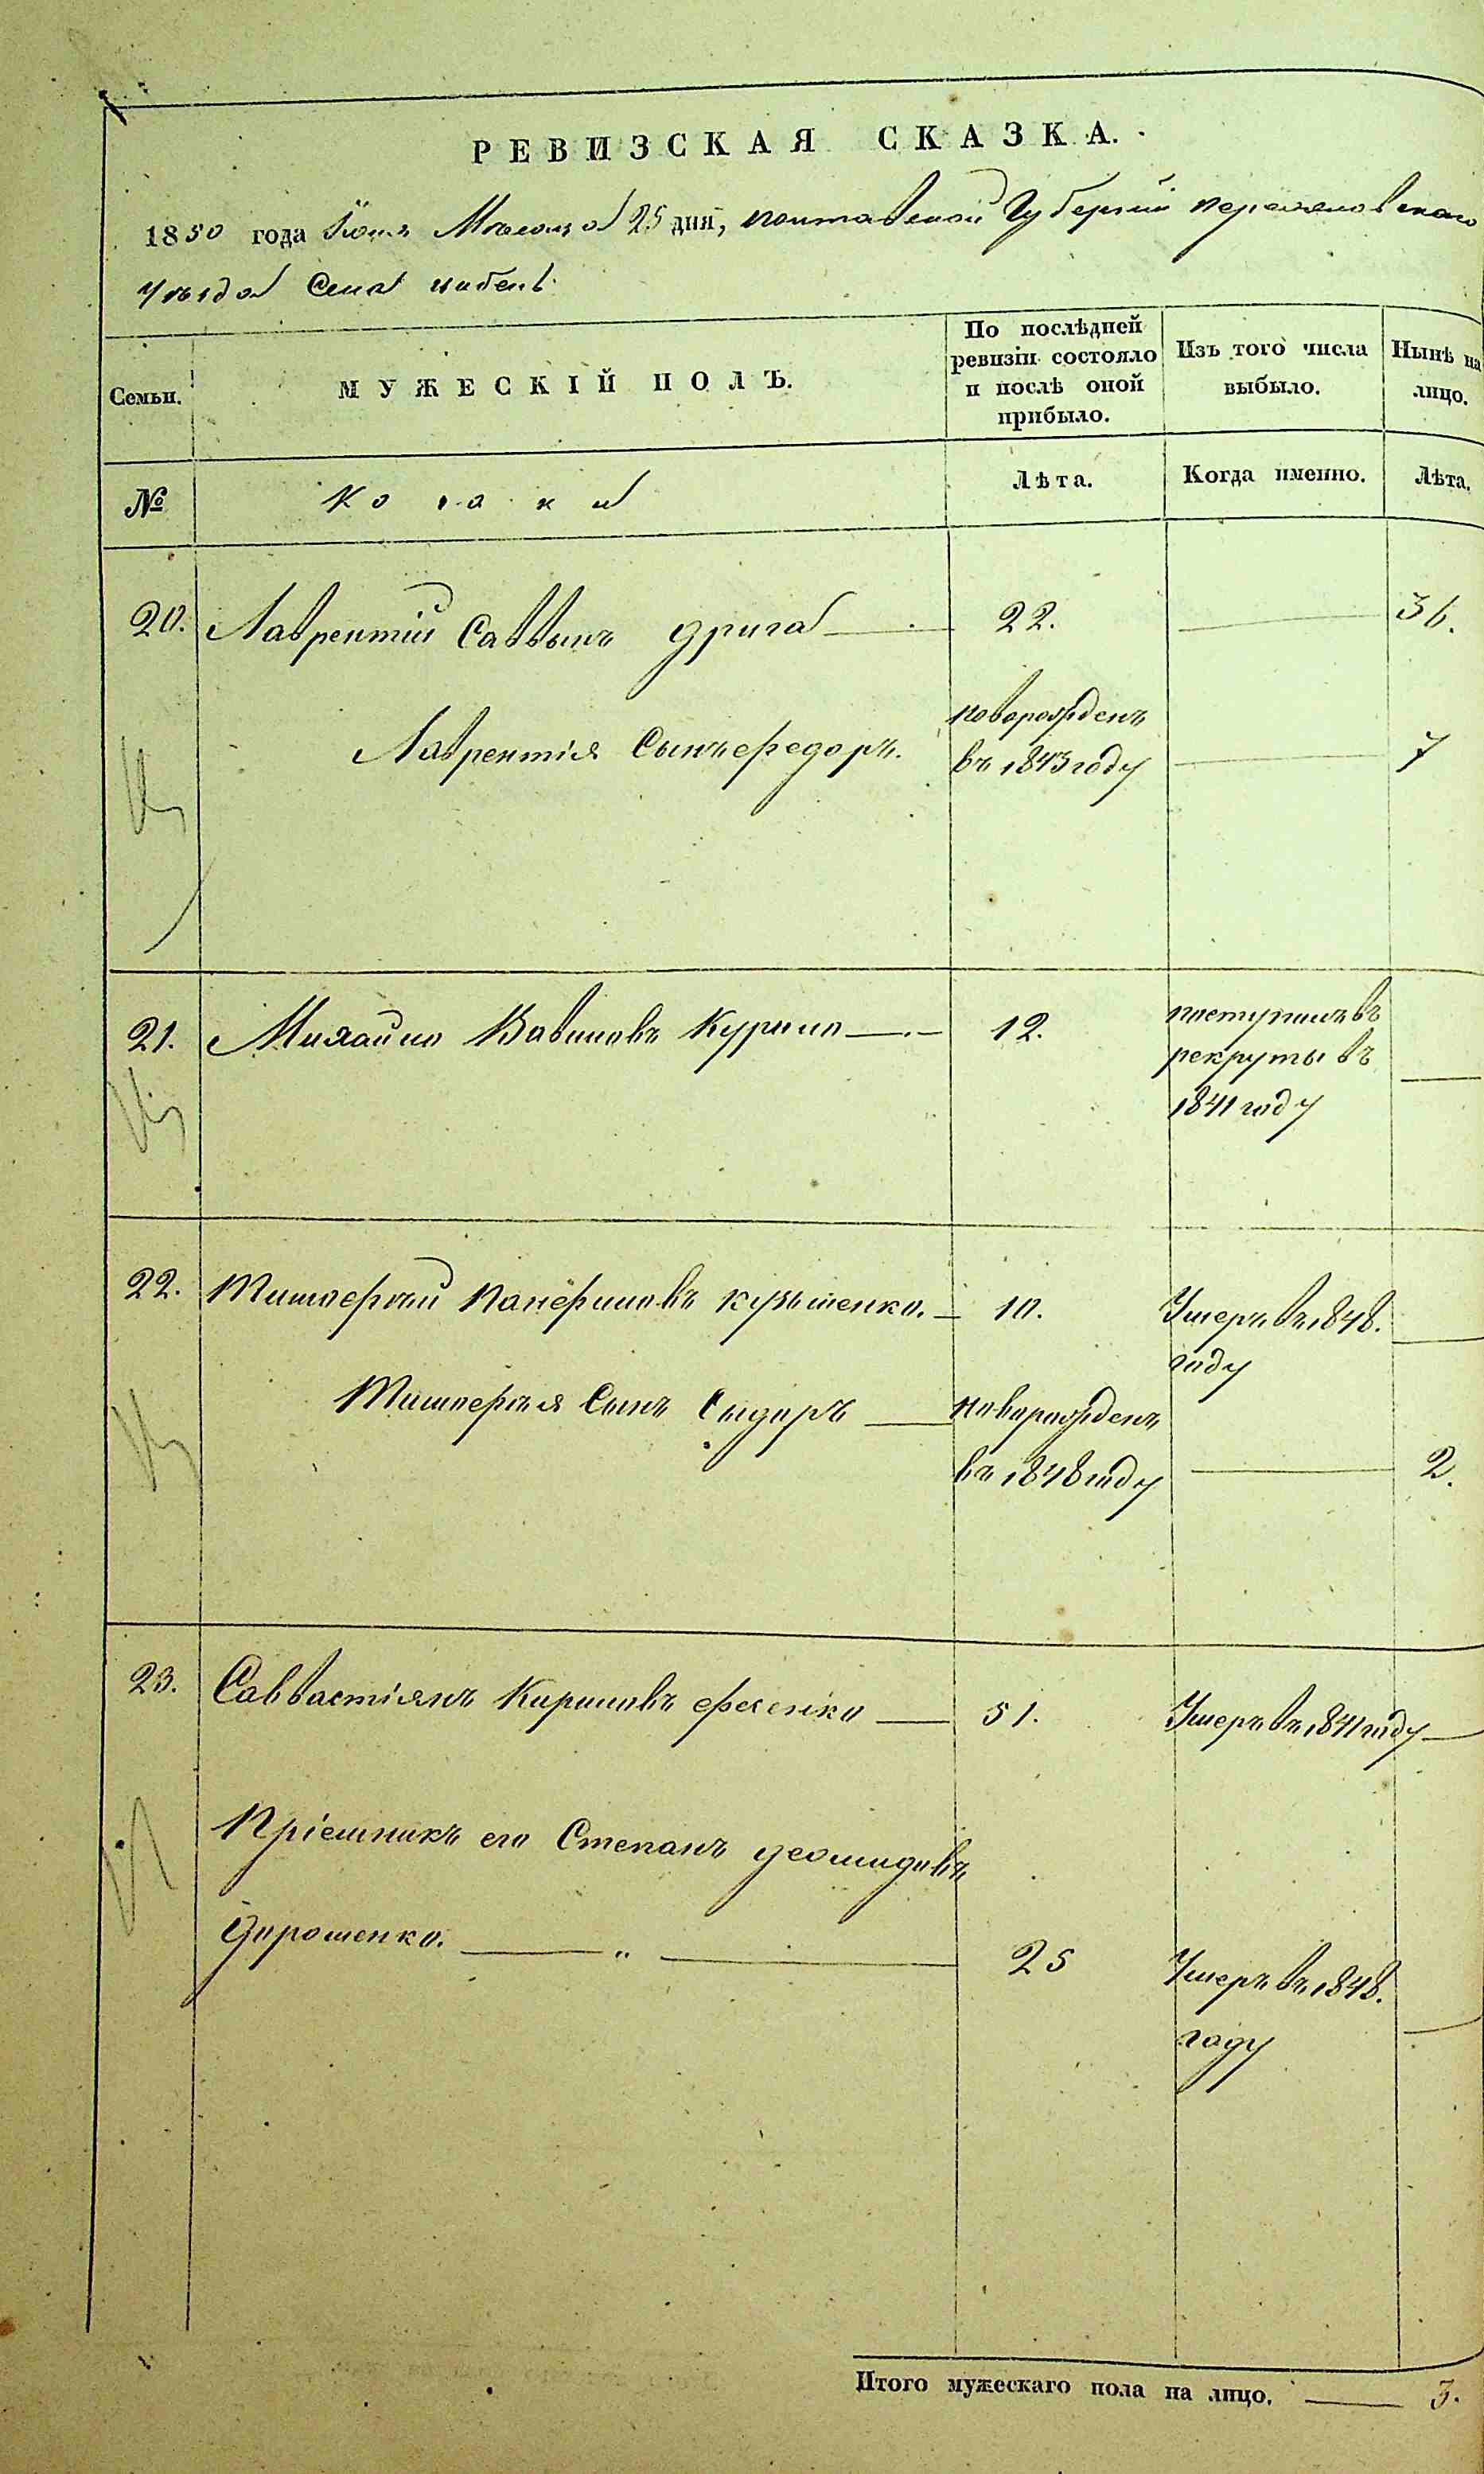 РЕВИЗСКАЯ СКАЗКА.
1850 года Іюня Месеца 25 дня, полтавской Губерніи переяславскаго
уезда Села
Семьи.
МУЖЕСКІЙ ПОЛЪ.
По послѣдней
ревизіи состояло
и послѣ оной
прибыло.
Изъ того числа
выбыло.
Нынѣ на
лицо.
№
Козаки
Лѣта.
Когда именно.
Лѣта.
20. Лаврентій Саввинъ дрига 22. 36.
Лаврентія Сынъ федоръ. новорожденъ
въ 1843 году 7
21. Михайло Вавиловъ Курило 12. поступилъ въ
рекруты въ
1841 году
22. Тимофѣй Панфиловъ кузьменко. 10. Умеръ въ 1848.
году
Тимофѣя Сынъ Сидоръ новорожденъ
въ 1848 году 2.
23. Савастіянъ Кириловъ фесенко 51. Умеръ въ 1841 году
Пріемникъ его Степанъ деомидовъ
Дорошенко. „ 25 Умеръ въ 1848.
году
Итого мужескаго пола на лицо. 3.